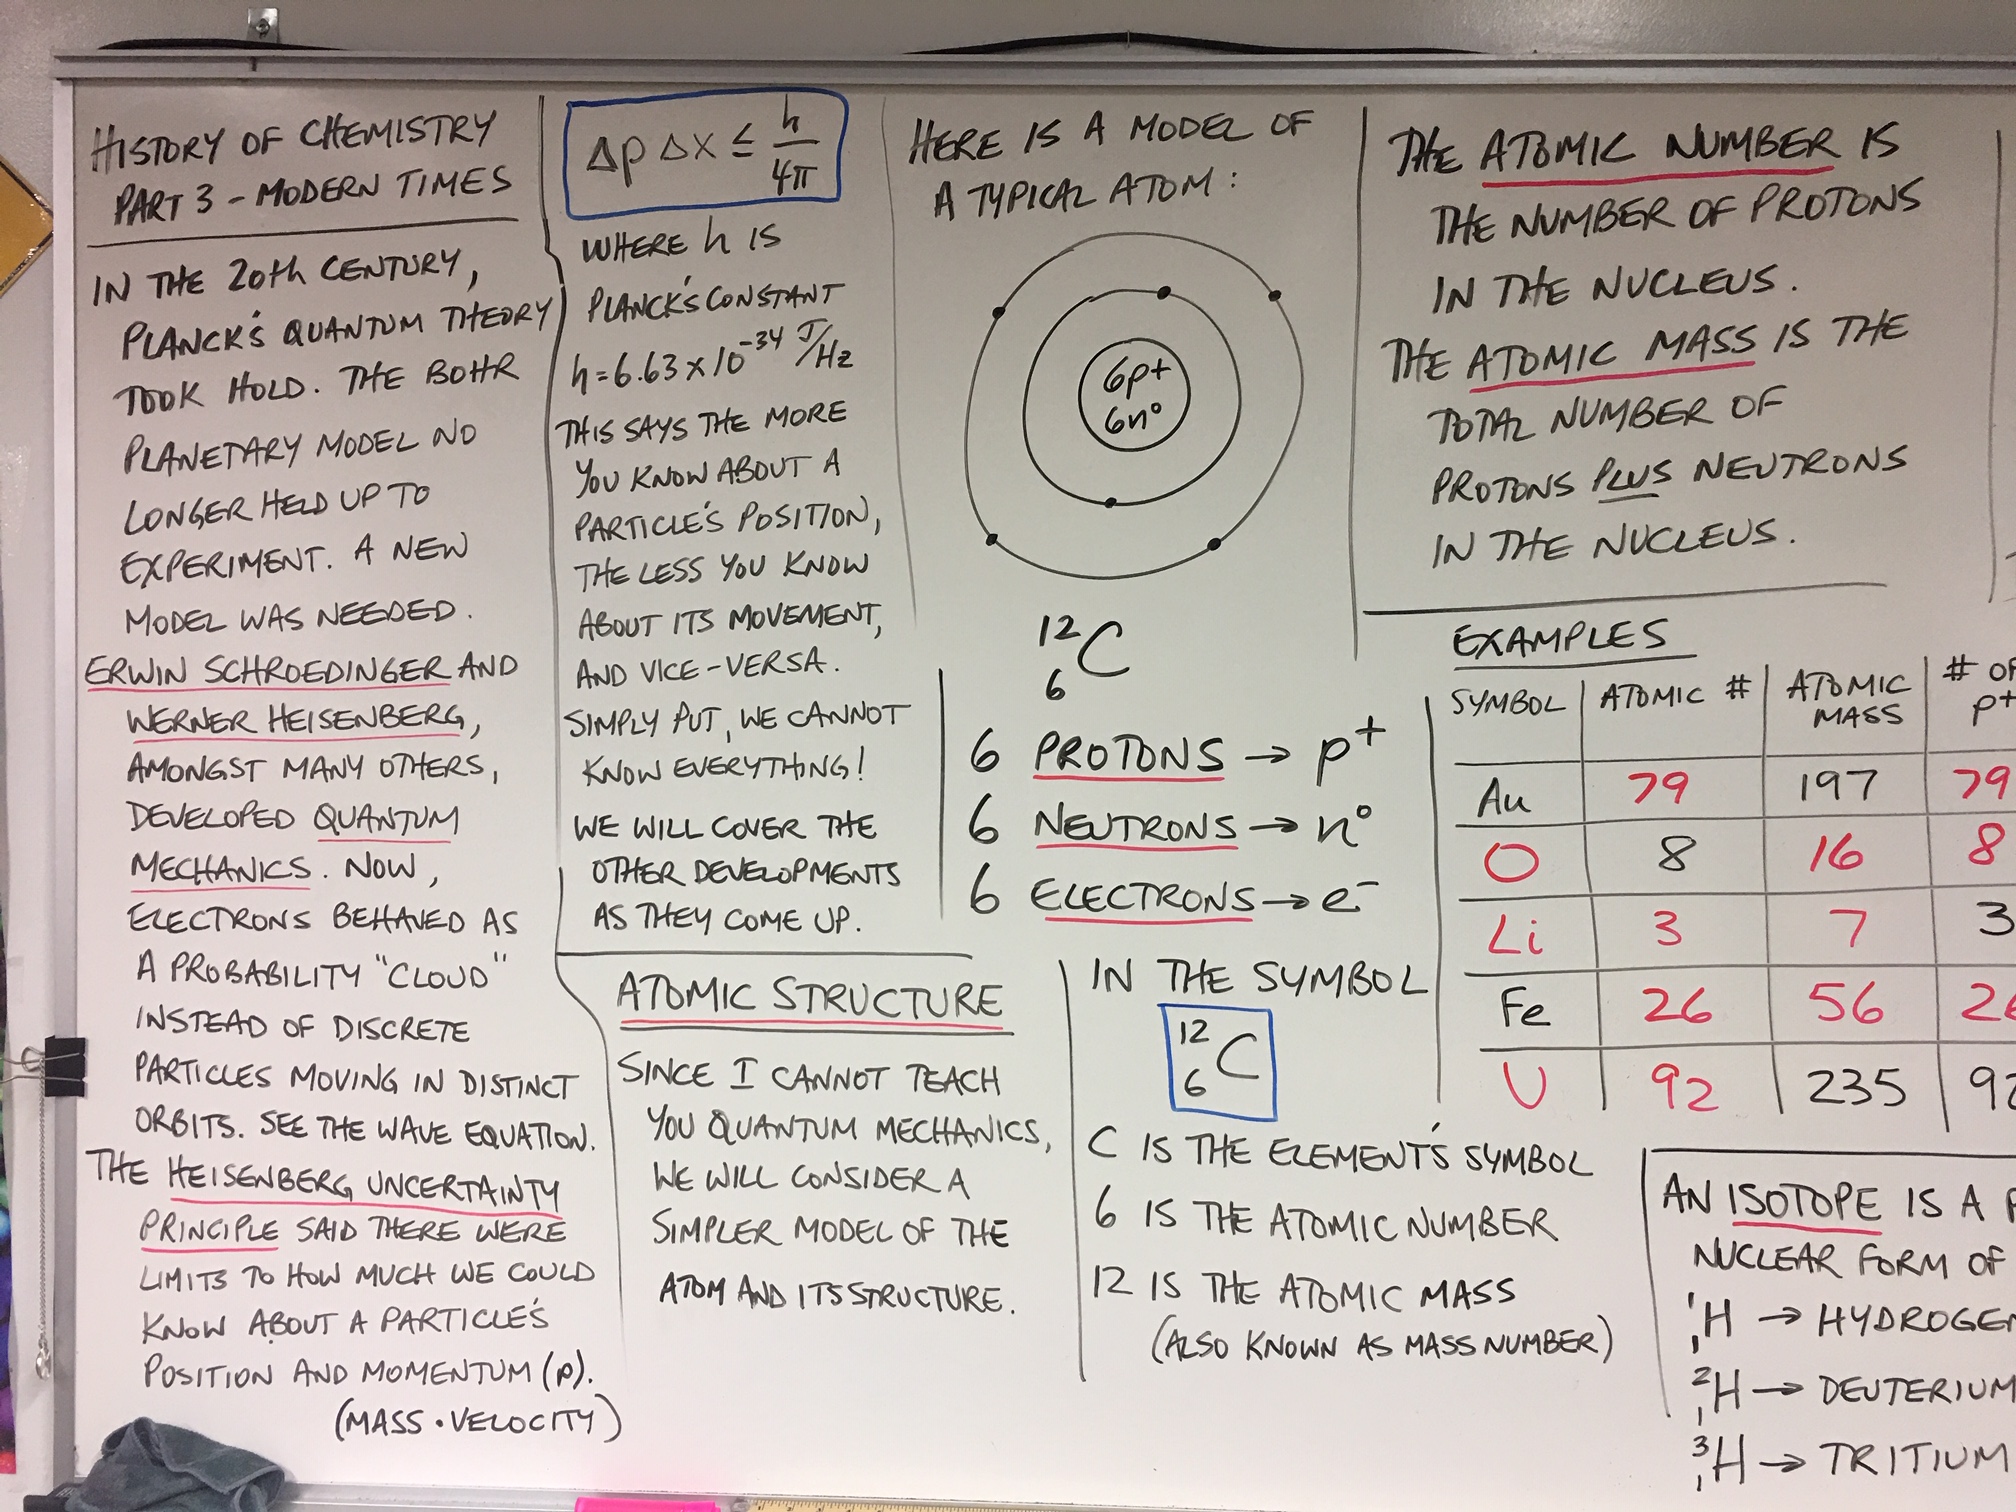 HISTORY OF CHEMISTRY
PART 3 - MODERN TIMES
IN THE 20th CENTURY,
PLANCK'S QUANTUM THEORY
TOOK HOLD. THE BOHR
PLANETARY MODEL NO
LONGER HELD UP TO
EXPERIMENT. A NEW
MODEL WAS NEEDED.
ERWIN SCHROEDINGER AND
WERNER HEISENBERG,
AMONGST MANY OTHERS,
DEVELOPED QUANTUM
MECHANICS. NOW,
ELECTRONS BEHAVED AS
A PROBABILITY "CLOUD"
INSTEAD OF DISCRETE
PARTICLES MOVING IN DISTINCT
ORBITS. SEE THE WAVE EQUATION.
THE HEISENBERG UNCERTAINTY
PRINCIPLE SAID THERE WERE
LIMITS TO HOW MUCH WE COULD
KNOW ABOUT A PARTICLE'S
POSITION AND MOMENTUM (p).
(MASS • VELOCITY)
Δp Δx ≤ h/4π
WHERE h IS
PLANCK'S CONSTANT
h = 6.63 x 10⁻³⁴ J/Hz
THIS SAYS THE MORE
YOU KNOW ABOUT A
PARTICLE'S POSITION,
THE LESS YOU KNOW
ABOUT ITS MOVEMENT,
AND VICE-VERSA.
SIMPLY PUT, WE CANNOT
KNOW EVERYTHING!
WE WILL COVER THE
OTHER DEVELOPMENTS
AS THEY COME UP.
ATOMIC STRUCTURE
SINCE I CANNOT TEACH
YOU QUANTUM MECHANICS,
WE WILL CONSIDER A
SIMPLER MODEL OF THE
ATOM AND ITS STRUCTURE.
HERE IS A MODEL OF
A TYPICAL ATOM:
6p+
6n°
¹²₆C
6 PROTONS → p⁺
6 NEUTRONS → n°
6 ELECTRONS → e⁻
IN THE SYMBOL
¹²₆C
C IS THE ELEMENT'S SYMBOL
6 IS THE ATOMIC NUMBER
12 IS THE ATOMIC MASS
(ALSO KNOWN AS MASS NUMBER)
THE ATOMIC NUMBER IS
THE NUMBER OF PROTONS
IN THE NUCLEUS.
THE ATOMIC MASS IS THE
TOTAL NUMBER OF
PROTONS PLUS NEUTRONS
IN THE NUCLEUS.
EXAMPLES
SYMBOL ATOMIC # ATOMIC MASS # OF p+
Au 79 197 79
O 8 16 8
Li 3 7 3
Fe 26 56 26
U 92 235 92
AN ISOTOPE IS A
NUCLEAR FORM OF
¹₁H → HYDROGEN
²₁H → DEUTERIUM
³₁H → TRITIUM